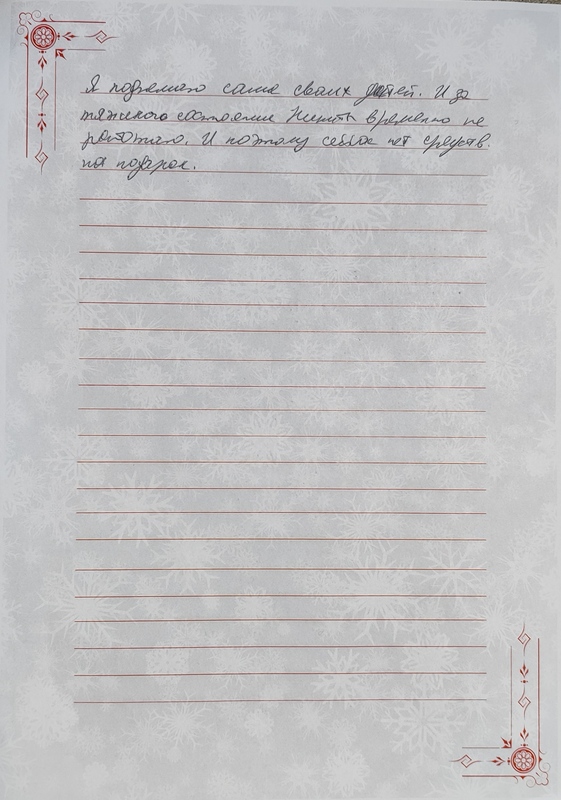 Я поднимаю сама своих детей. И за
тяжелого состояние Никиты временно не
работаю. И поэтому сейчас нет средств.
на подарок.